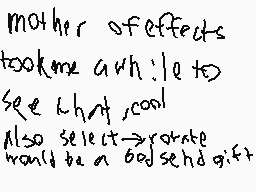 mother of effects
took me a wh:le to
see that, cool
Also select→rotate
would be a godsend gift